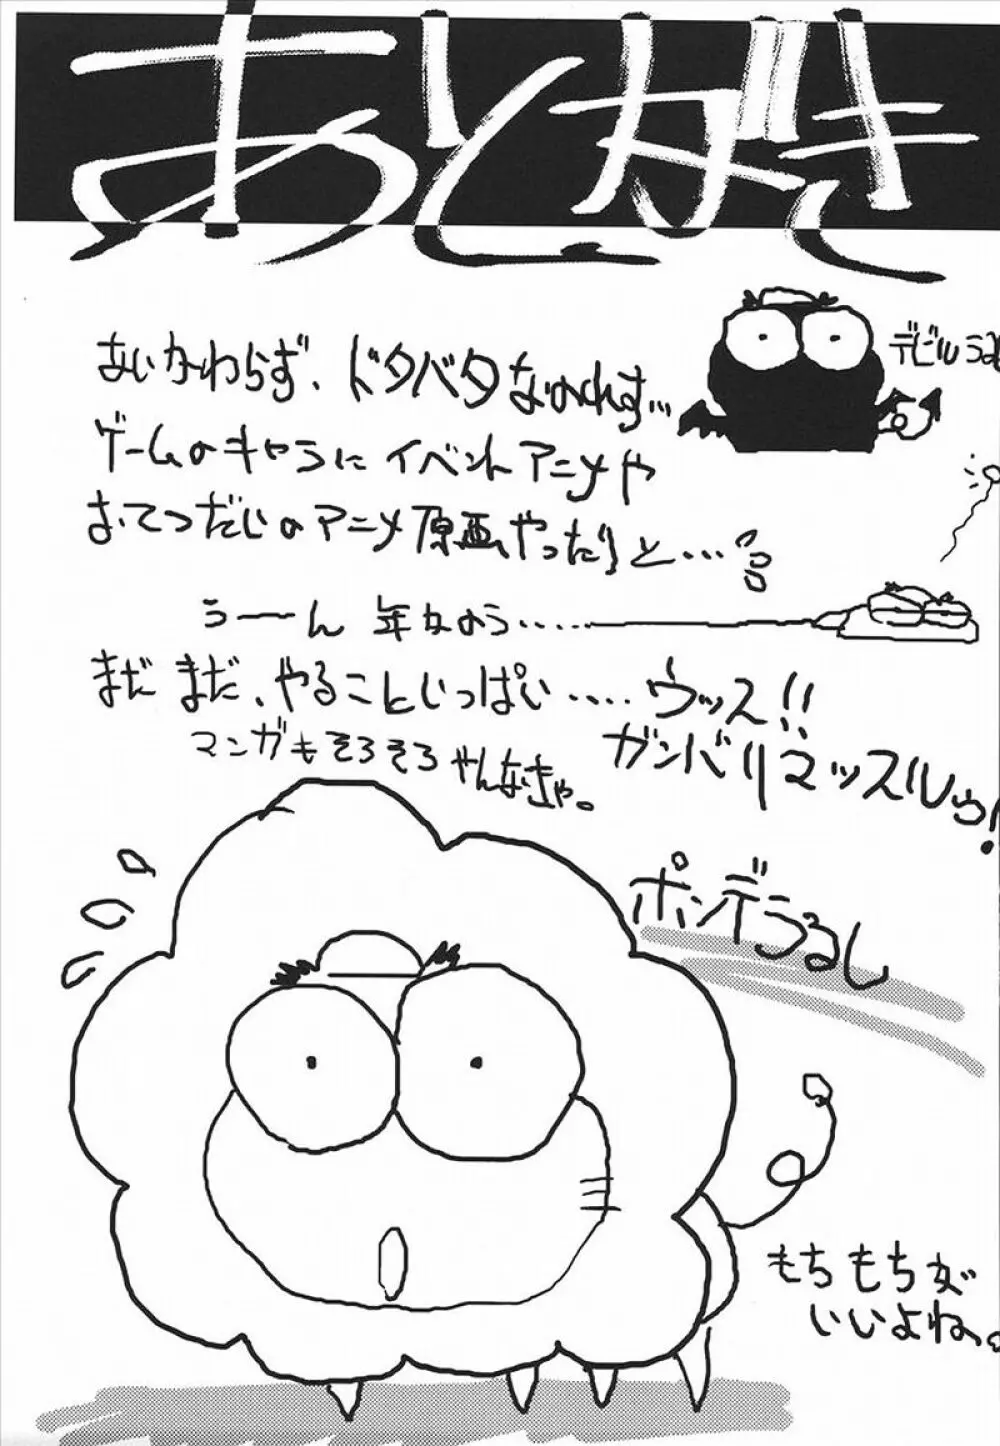 あとがき
あいかわらず、ドタバタなのれす…
デビルうる
ゲームのキャラにイベントアニメや
おてつだいのアニメ原画やったりと…
うーーん 年かのう……
まだまだ、やることといっぱい…… ウッス!!
マンガもそろそろやんなきゃ。
ガンバリマッスルゥ!
ポンデうるし
もちもちが
いいよね。